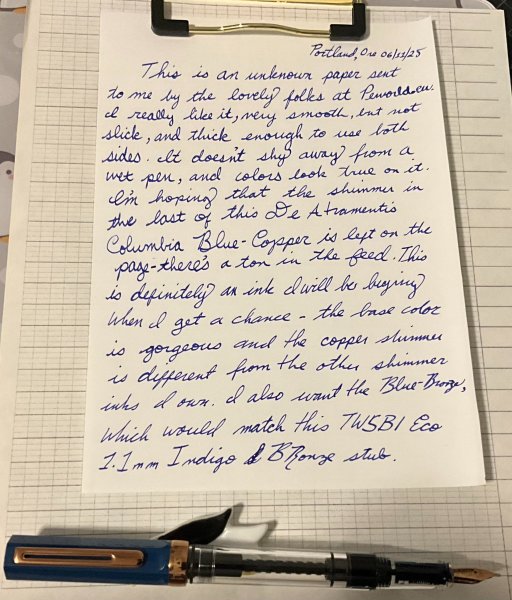 Portland, Ore 06/11/25
This is an unknown paper sent
to me by the lovely folks at Penworld.eu.
I really like it, very smooth, but not
slick, and thick enough to use both
sides. It doesn't shy away from a
wet pen, and colors look true on it.
I'm hoping that the shimmer in
the last of this De Atramentis
Columbia Blue-Copper is left on the
page-there's a ton in the feed. This
is definitely an ink I will be buying
when I get a chance - the base color
is gorgeous and the copper shimmer
is different from the other shimmer
inks I own. I also want the Blue-Bronze,
which would match this TWSBI Eco
1.1mm Indigo & BRonze stub.